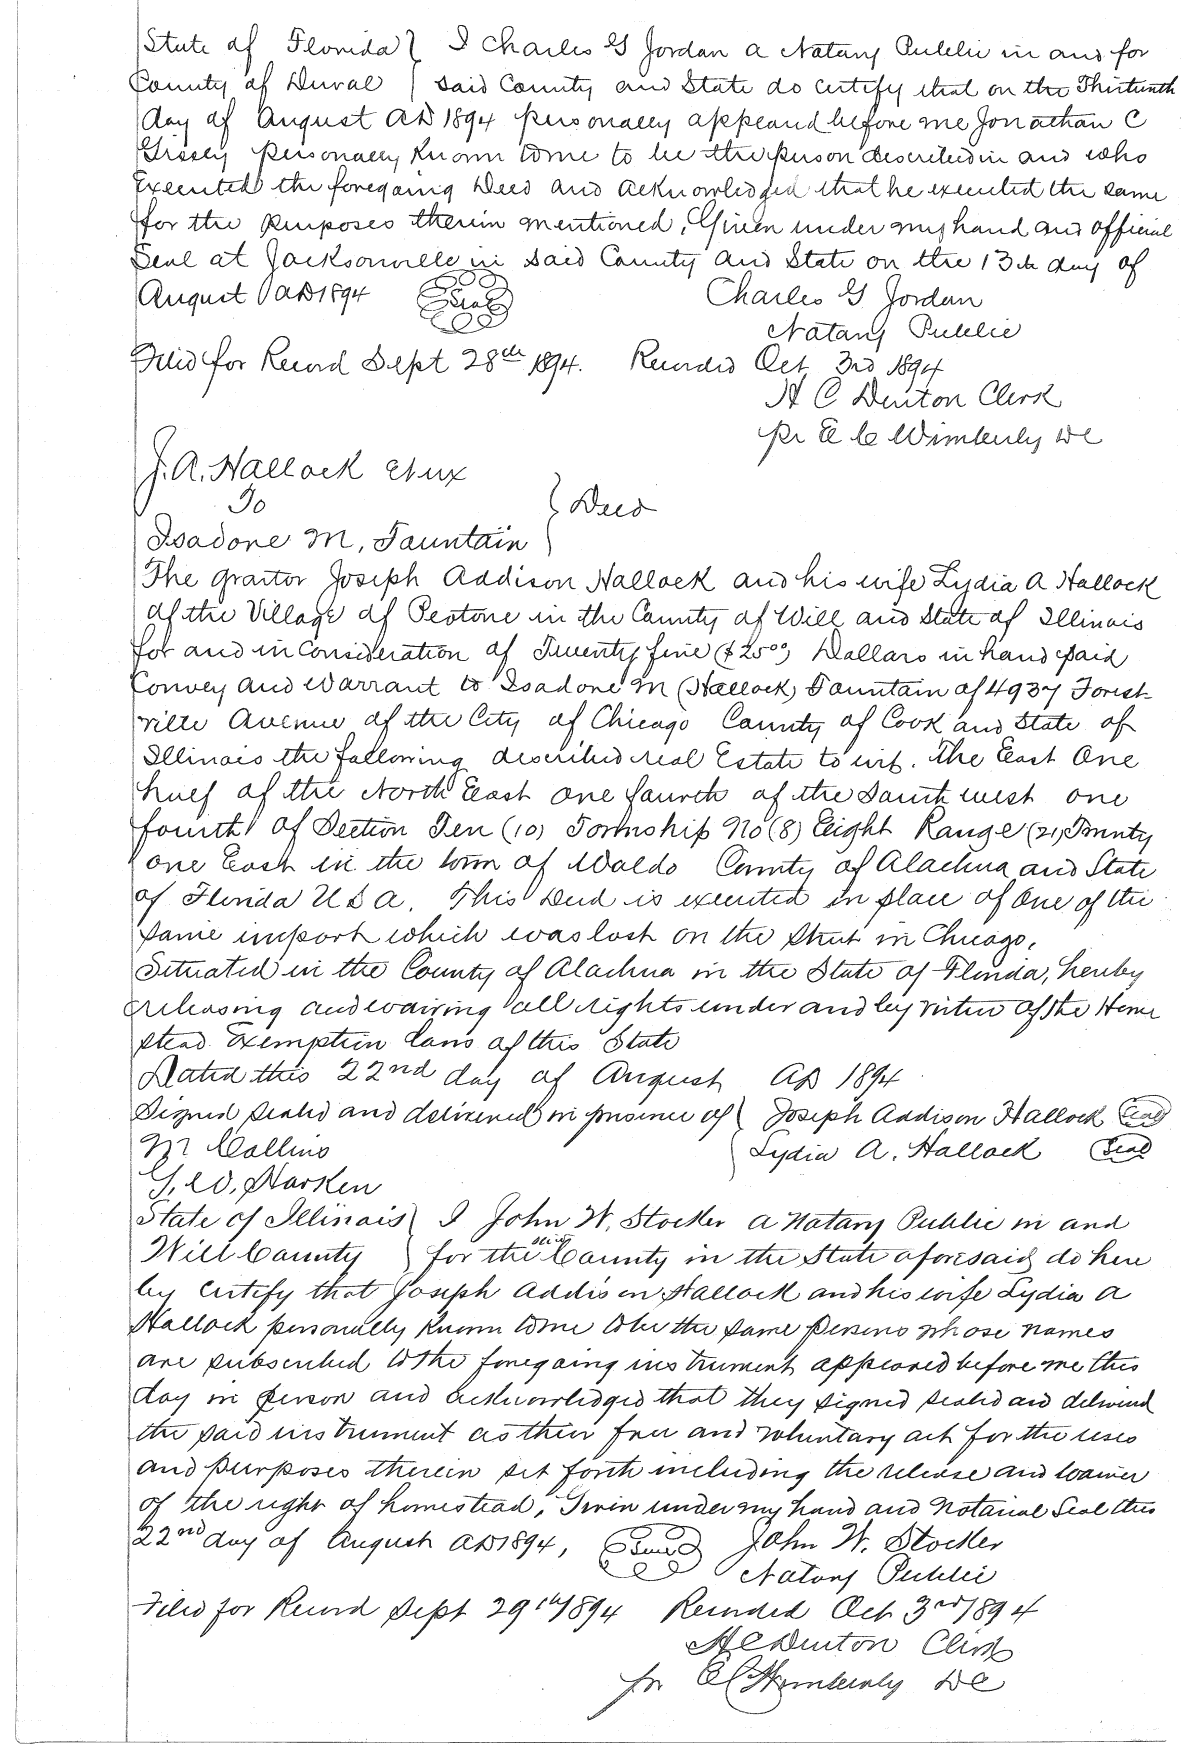 State of Florida } I Charles G Jordan a Notary Public in and for
County of Duval } said County and State do certify that on the Thirteenth
day of August AD 1894 personally appeared before me Jonathan C
Grissey personally known to me to be the person described in and who
Executed the foregoing Deed and acknowledged that he executed the same
for the purposes therein mentioned, Given under my hand and official
Seal at Jacksonville in said County and State on the 13th day of
August AD 1894 Seal Charles G Jordan
Notary Public
Filed for Record Sept 28th 1894. Recorded Oct 3rd 1894
H C Denton Clerk
pr E C Wimberly DC
J. A. Hallock et ux
To } Deed
Isadone M, Fauntain
The grantor Joseph Addison Hallock and his wife Lydia A Hallock
of the Village of Peotone in the County of Will and State of Illinois
for and in consideration of Twenty five ($25⁰⁰) Dollars in hand paid
Convey and Warrant to Isadone M (Hallock) Fauntain of 4937 Forest-
ville Avenue of the City of Chicago County of Cook and State of
Illinois the following described real Estate to wit. The East One
half of the North East one fourth of the South west one
fourth of Section Ten (10) Township No (8) Eight Range (21) Twenty
one East in the town of Waldo County of Alachua and State
of Florida U S A. This Deed is executed in place of One of the
same import which was lost on the street in Chicago,
Situated in the County of Alachua in the State of Florida, hereby
releasing and waiving all rights under and by virtue of the Home
stead Exemption laws of this State
Dated this 22nd day of August AD 1894
Signed sealed and delivered in presence of } Joseph Addison Hallock Seal
M Collins } Lydia A. Hallock Seal
G. W. Harken
State of Illinois } I John W. Stocker a Notary Public in and
Will County } for the said County in the State aforesaid do here
by certify that Joseph Addison Hallock and his wife Lydia A
Hallock personally known to me to be the same persons whose names
are subscribed to the foregoing instrument appeared before me this
day in person and acknowledged that they signed sealed and delivered
the said instrument as their free and voluntary act for the uses
and purposes therein set forth including the release and waiver
of the right of homestead, Given under my hand and Notarial Seal this
22nd day of August AD 1894, Seal John W. Stocker
Notary Public
Filed for Record Sept 29th 1894 Recorded Oct 3rd 1894
H C Denton Clerk
pr E C Wimberly DC